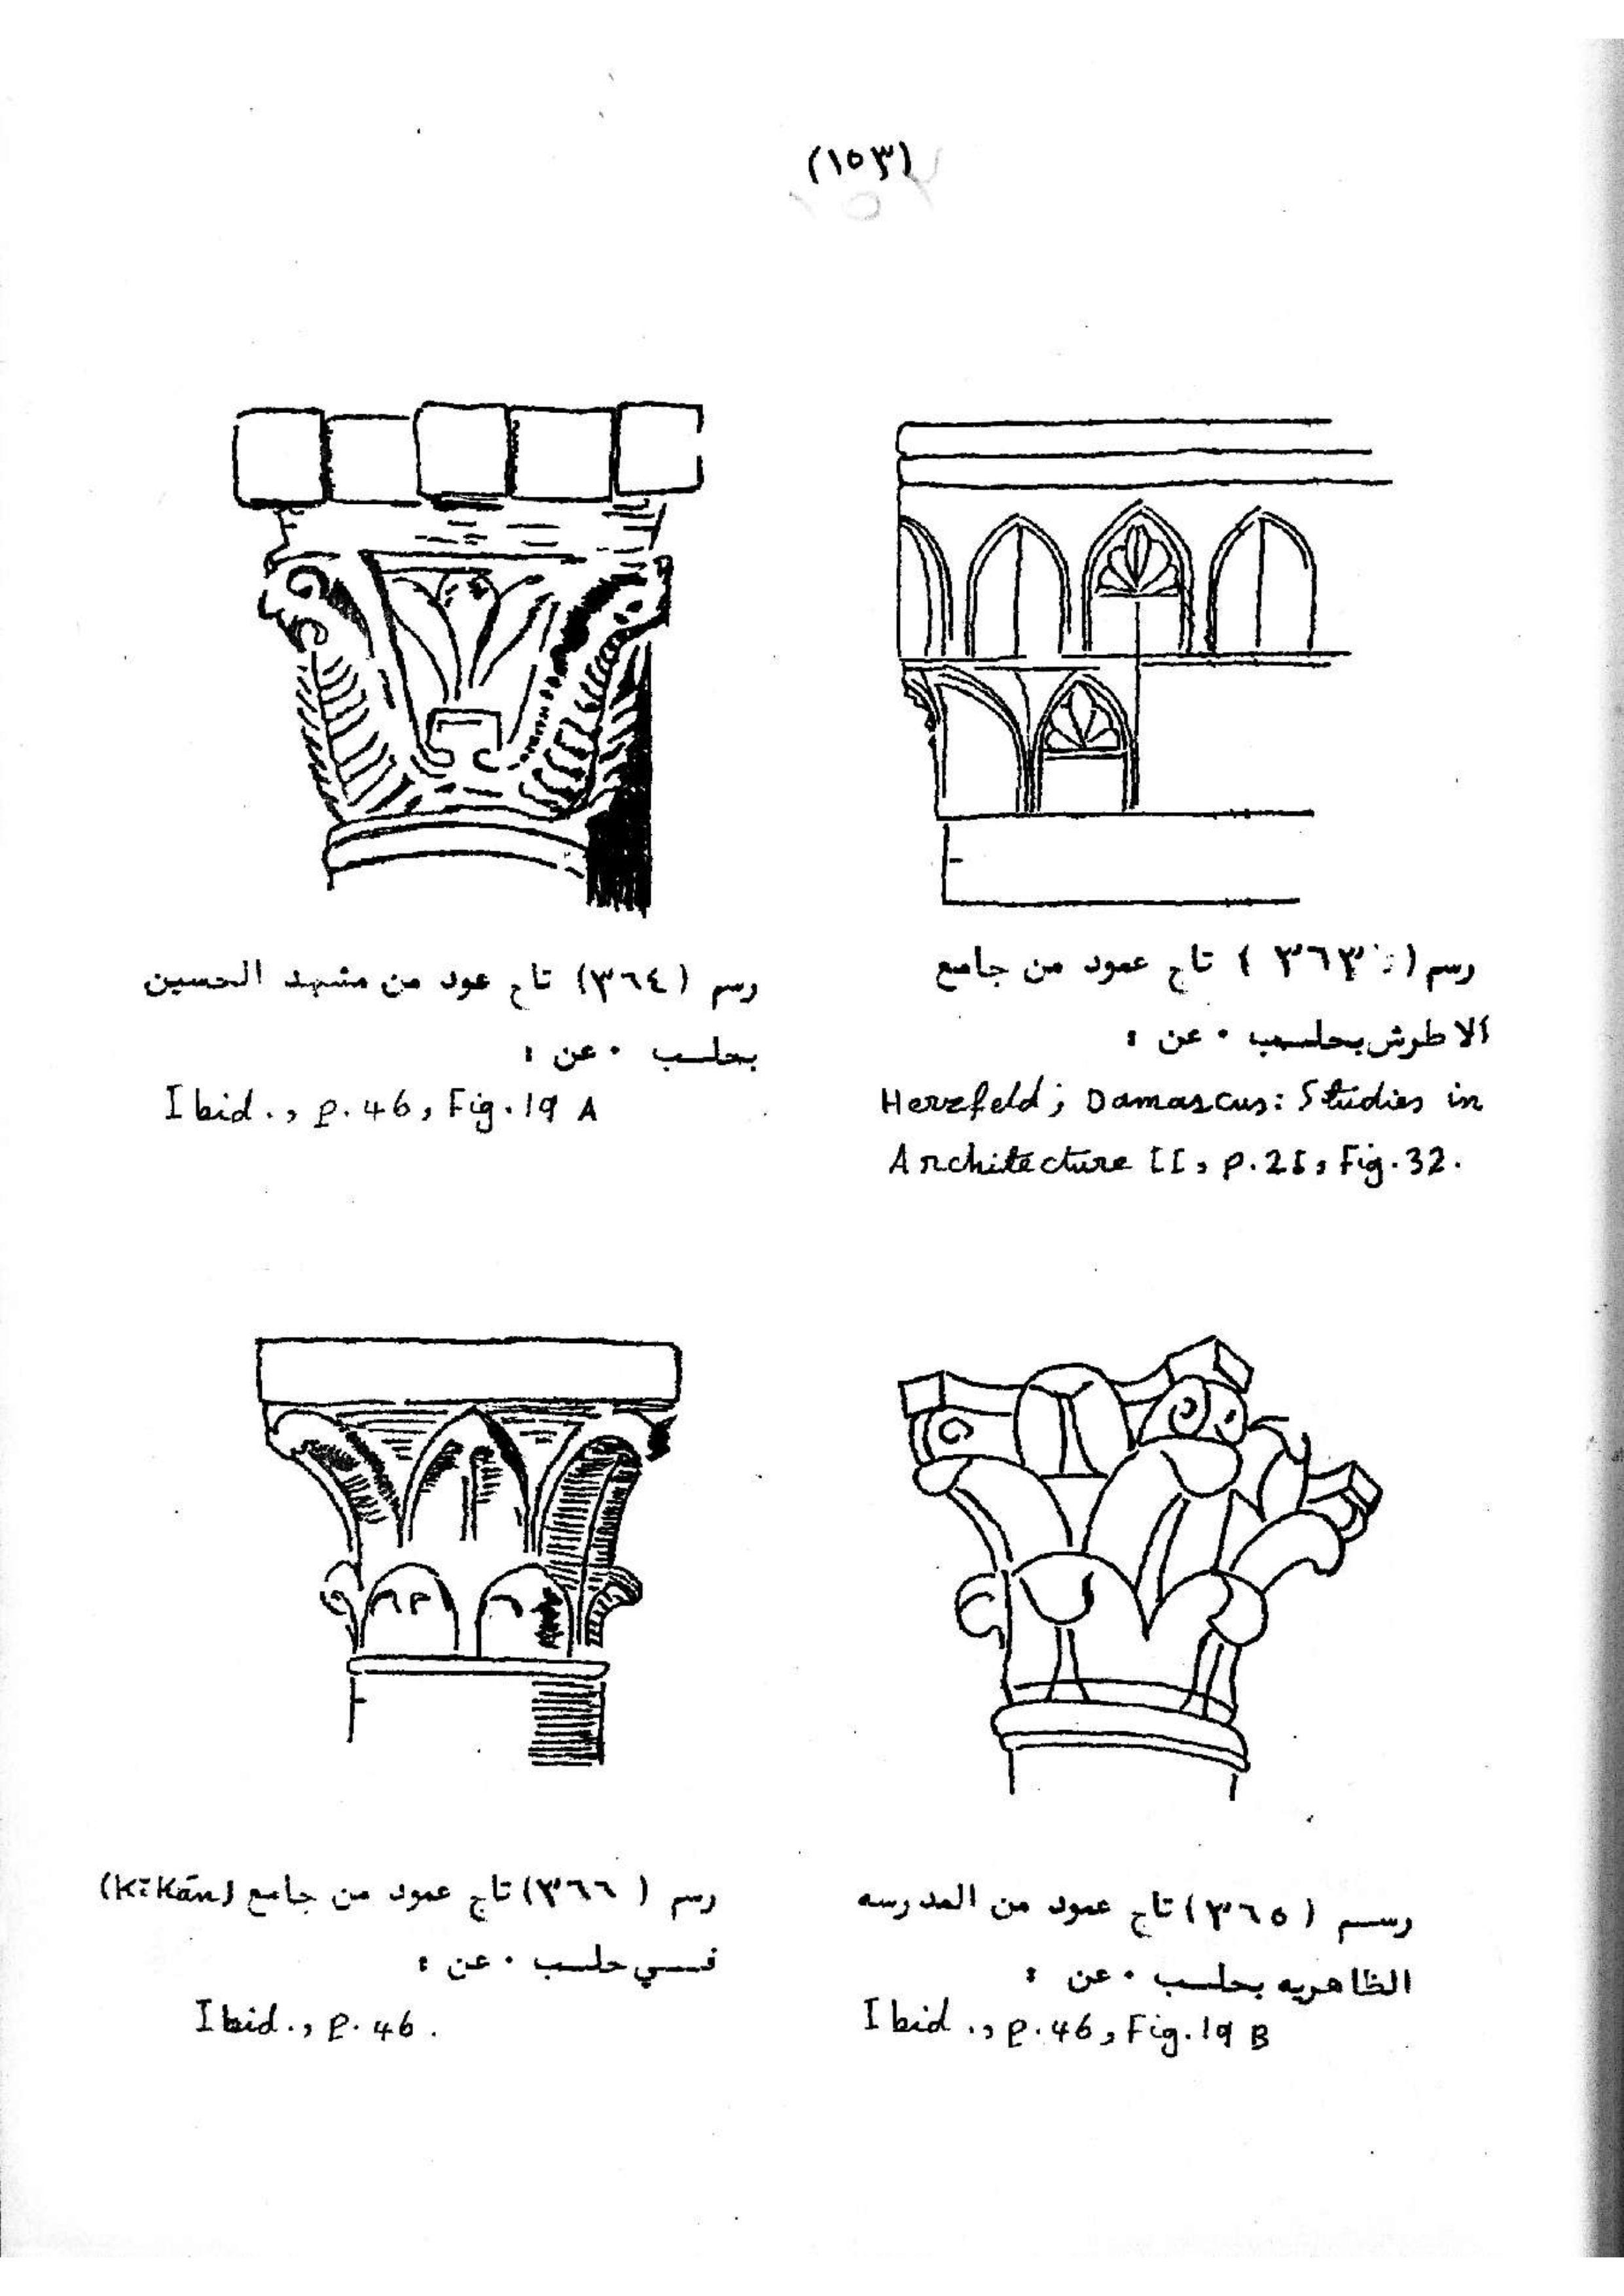 (١٥٣)
رسم (٣٦٣) تاج عمود من جامع
الاطوش بحلب ٠ عن :
Herzfeld; Damascus: Studies in
Architecture II, p.21, Fig.32.
رسم (٣٦٤) تاج عود من مشهد الحسين
بحلب ٠ عن :
Ibid., p.46, Fig.19 A
رسم (٣٦٥) تاج عمود من المدرسه
الظاهريه بحلب ٠ عن :
Ibid., p.46, Fig.19 B
رسم (٣٦٦) تاج عمود من جامع (Kīkān)
في حلب ٠ عن :
Ibid., p.46.